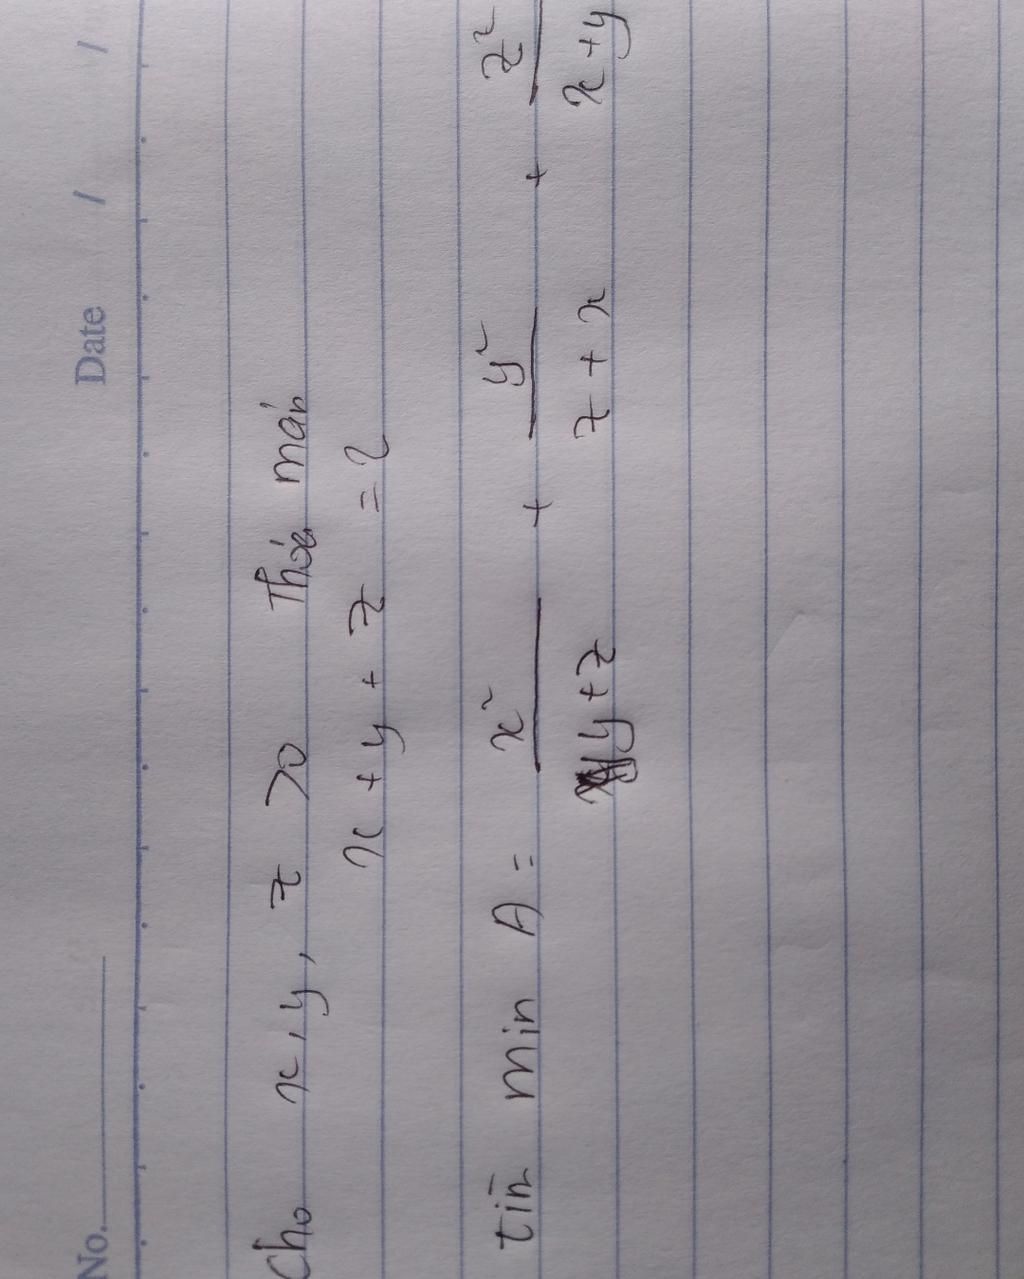 No. Date / /
Cho x, y, z > 0 Thỏa mãn
x + y + z = 2
tìm min A = x²/(y+z) + y²/(z+x) + z²/(x+y)